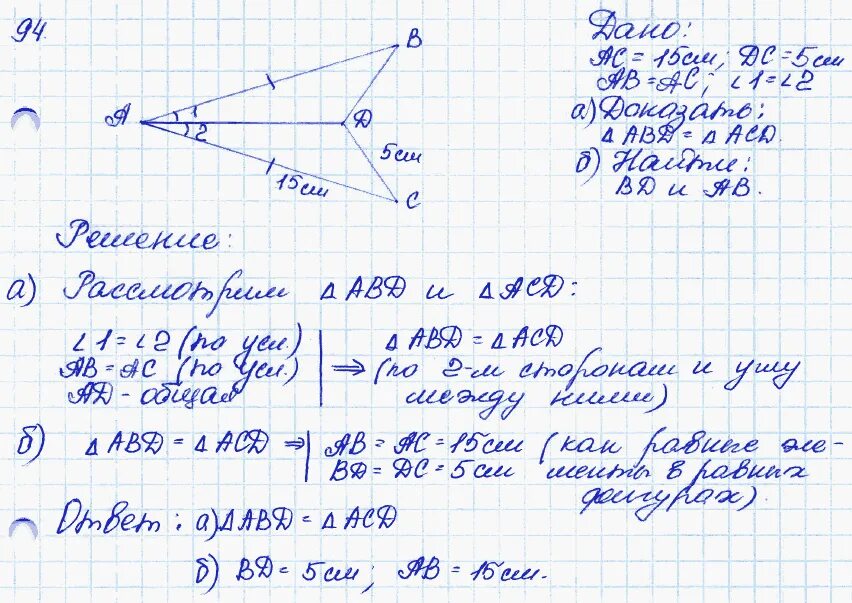 94.
B
A
1
2
D
5см
15см
C
Дано:
AC = 15см; DC = 5см
AB = AC; ∠1 = ∠2
а) Доказать:
△ABD = △ACD.
б) Найти:
BD и AB.
Решение:
а) Рассмотрим △ABD и △ACD:
∠1 = ∠2 (по усл.)
AB = AC (по усл.)
AD - общая
⇒
△ABD = △ACD
(по 2-м сторонам и углу
между ними)
б) △ABD = △ACD ⇒ AB = AC = 15см (как равные эле-
BD = DC = 5см менты в равных
фигурах).
Ответ: а) △ABD = △ACD
б) BD = 5см; AB = 15см.